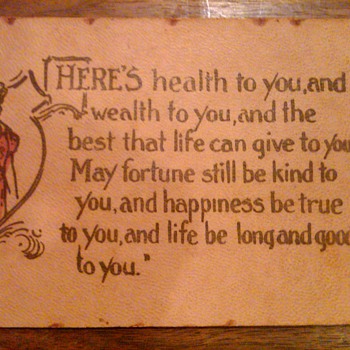 HERE'S health to you, and
wealth to you, and the
best that life can give to you
May fortune still be kind to
you, and happiness be true
to you, and life be long and good
to you."